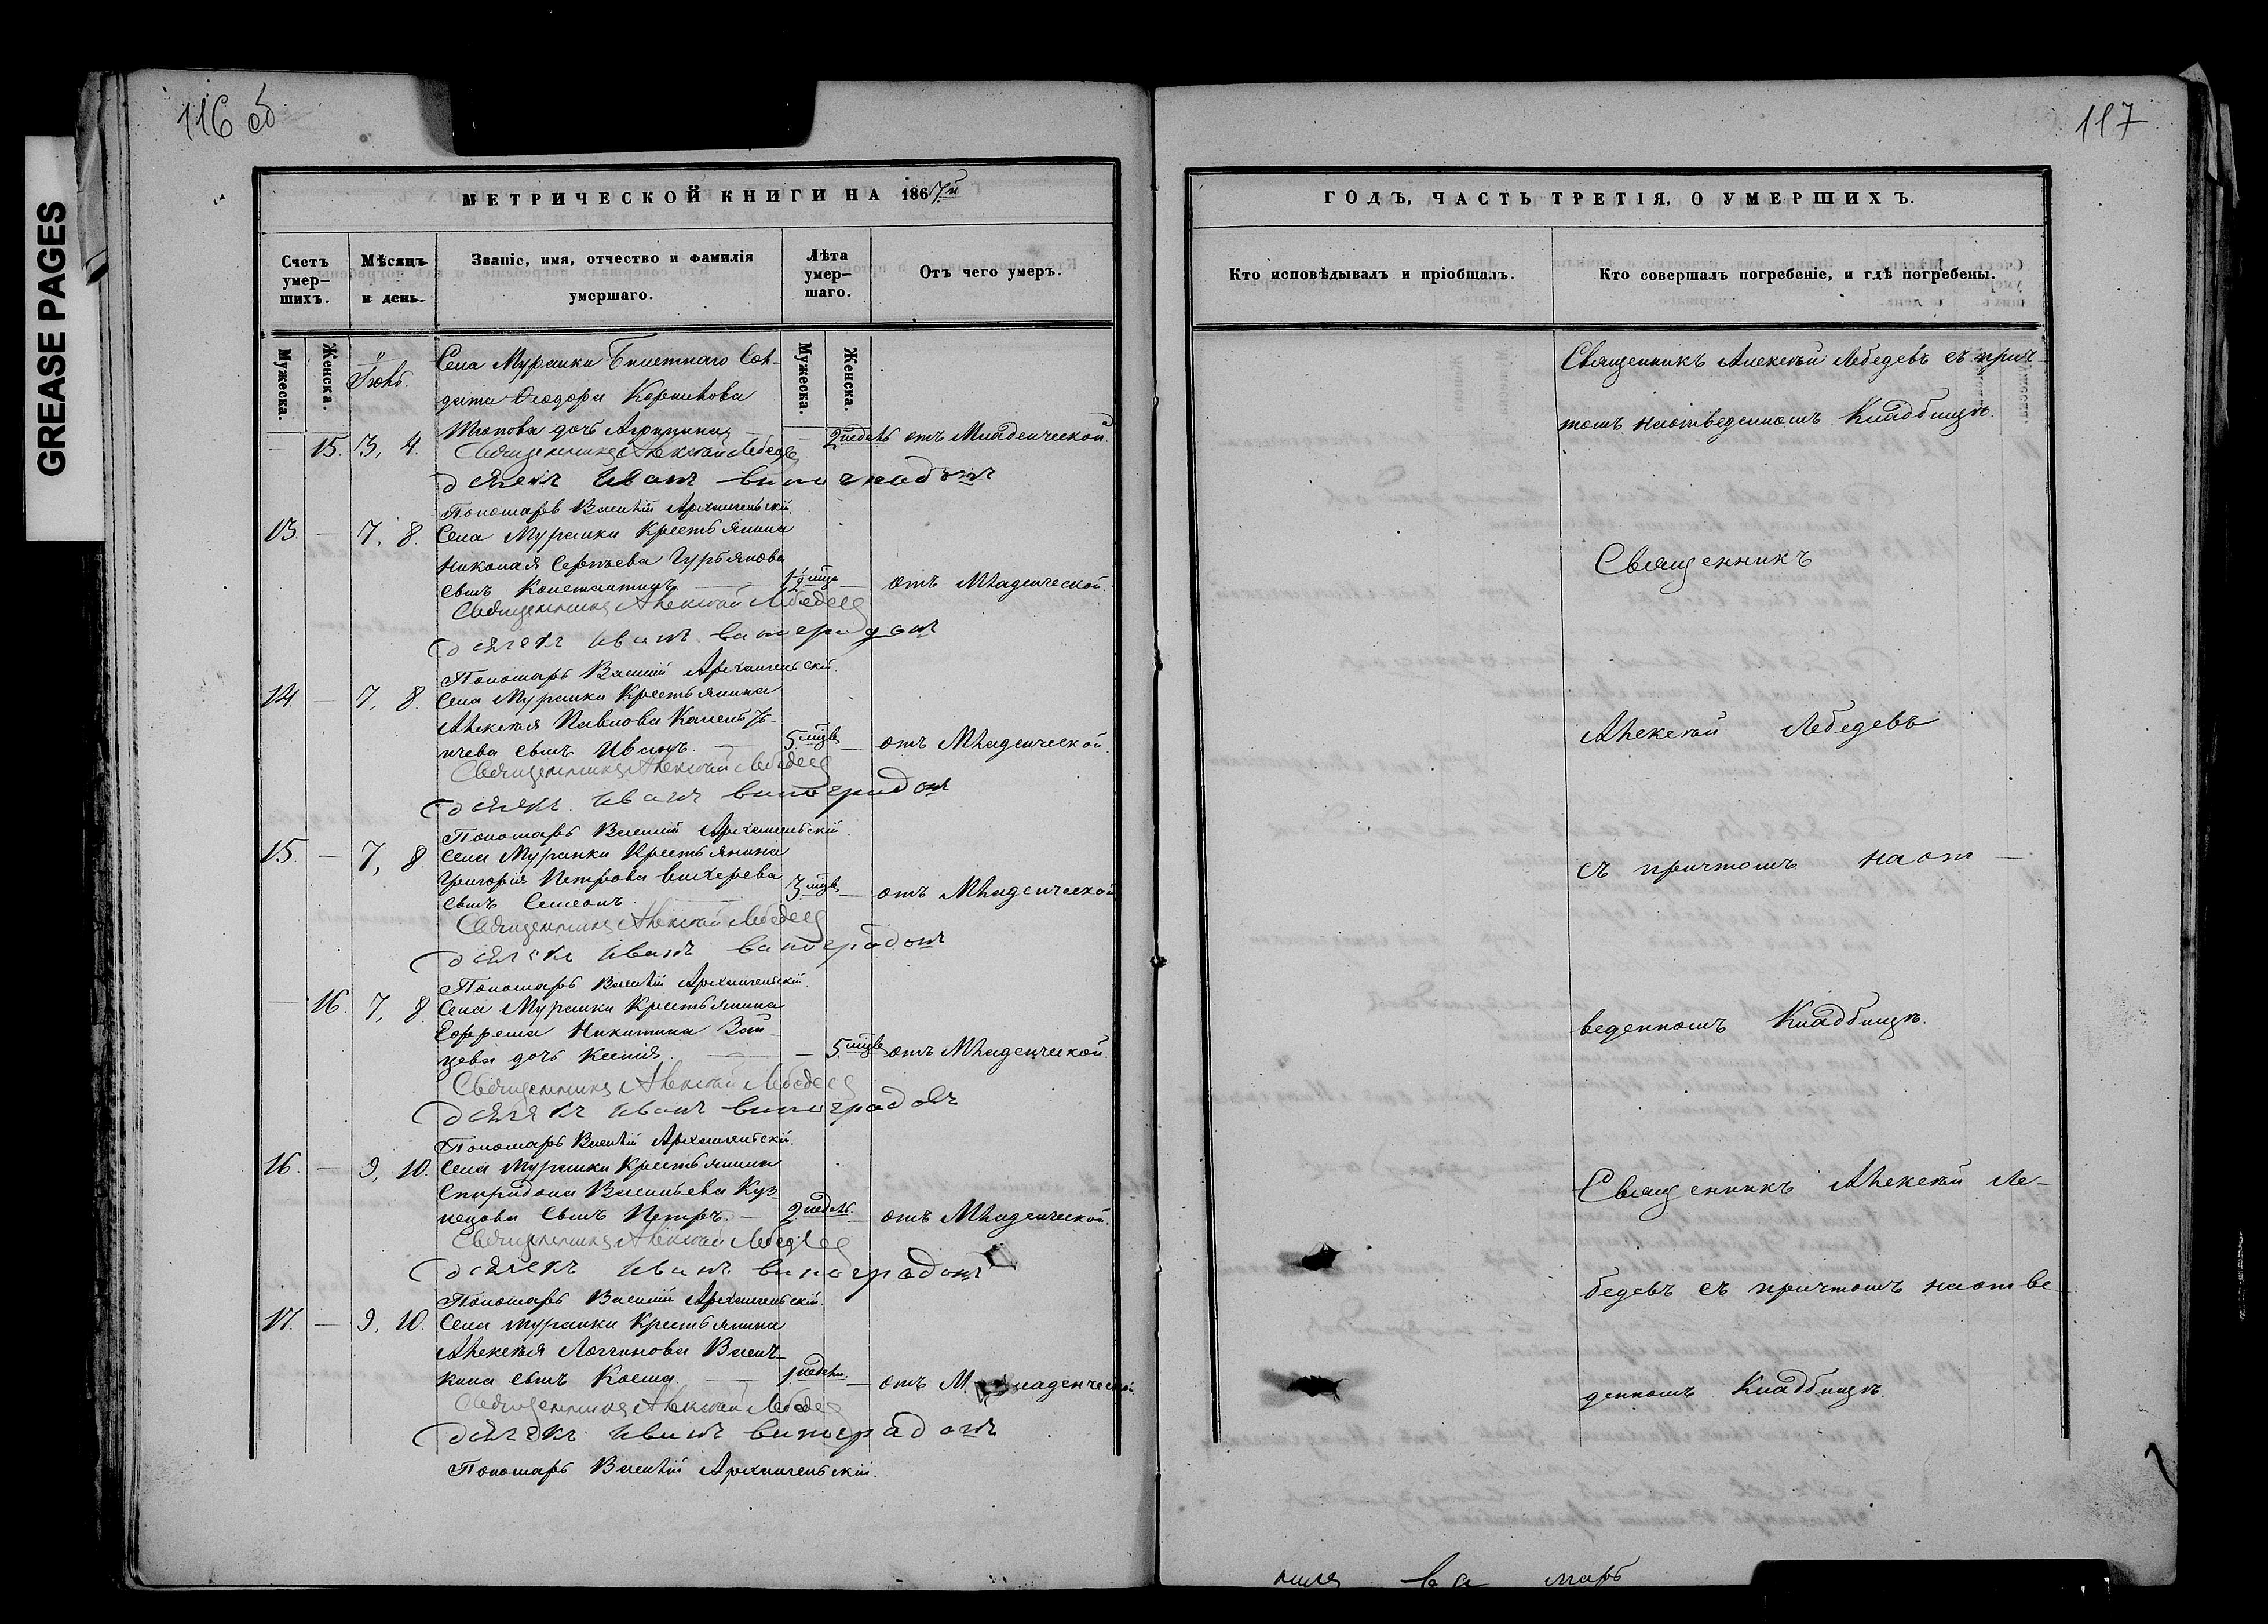 GREASE PAGES
116 об
МЕТРИЧЕСКОЙ КНИГИ НА 1867й
Счетъ умер-
шихъ.
Мѣсяцъ
и день
Званіе, имя, отчество и фамилія
умершаго.
Лѣта
умер-
шаго.
Отъ чего умеръ.
Мужеска.
Женска.
Мужеска.
Женска.
Села Муранки Билетнаго Сол-
дата Ѳеодора Корнилова
дочь Агрипина
15. 3, 4. 2 недѣль отъ Младенческой.
Священникъ Алексѣй Лебедевъ
дьячекъ Иванъ виноградовъ
Пономарь Василій Архангельскій.
13. — 7, 8. Села Муранки Крестьянина
Николая Сергѣева Гурьянова
сынъ Константинъ — отъ Младенческой.
Священникъ Алексѣй Лебедевъ
дьячекъ Иванъ виноградовъ
Пономарь Василій Архангельскій.
14. — 7, 8. Села Муранки Крестьянина
Алексѣя Павлова
сынъ Иванъ. — 5 мцвъ — отъ Младенческой.
Священникъ Алексѣй Лебедевъ
дьячекъ Иванъ виноградовъ
Пономарь Василій Архангельскій.
15. — 7, 8. Села Муранки Крестьянина
Григорія Петрова
сынъ Симеонъ. 3 мцвъ — отъ Младенческой
Священникъ Алексѣй Лебедевъ
дьячекъ Иванъ виноградовъ
Пономарь Василій Архангельскій.
— 16. 7, 8. Села Муранки Крестьянина
Ефрема Никитина Зай-
цева дочь Ксенія. — 5 мцвъ отъ Младенческой.
Священникъ Алексѣй Лебедевъ
дьячекъ Иванъ виноградовъ
Пономарь Василій Архангельскій.
16. — 9, 10. Села Муранки Крестьянина
Спиридона Васильева Куз-
нецова сынъ Петръ. — 2 недѣль. — отъ Младенческой.
Священникъ Алексѣй Лебедевъ
дьячекъ Иванъ виноградовъ
Пономарь Василій Архангельскій.
17. — 9, 10. Села Муранки Крестьянина
Алексѣя Логгинова
сынъ Косма. — 1 недѣли. — отъ Младенческой
Священникъ Алексѣй Лебедевъ
дьячекъ Иванъ виноградовъ
Пономарь Василій Архангельскій.
117
ГОДЪ, ЧАСТЬ ТРЕТІЯ, О УМЕРШИХЪ.
Кто исповѣдывалъ и пріобщалъ.
Кто совершалъ погребеніе, и гдѣ погребены.
Священникъ Алексѣй Лебедевъ съ прич-
томъ наотведенномъ Кладбищѣ.
Священникъ
Алексѣй Лебедевъ
съ причтомъ на от—
веденномъ Кладбищѣ.
Священникъ Алексѣй Ле-
бедевъ съ причтомъ наотве-
денномъ Кладбищѣ.